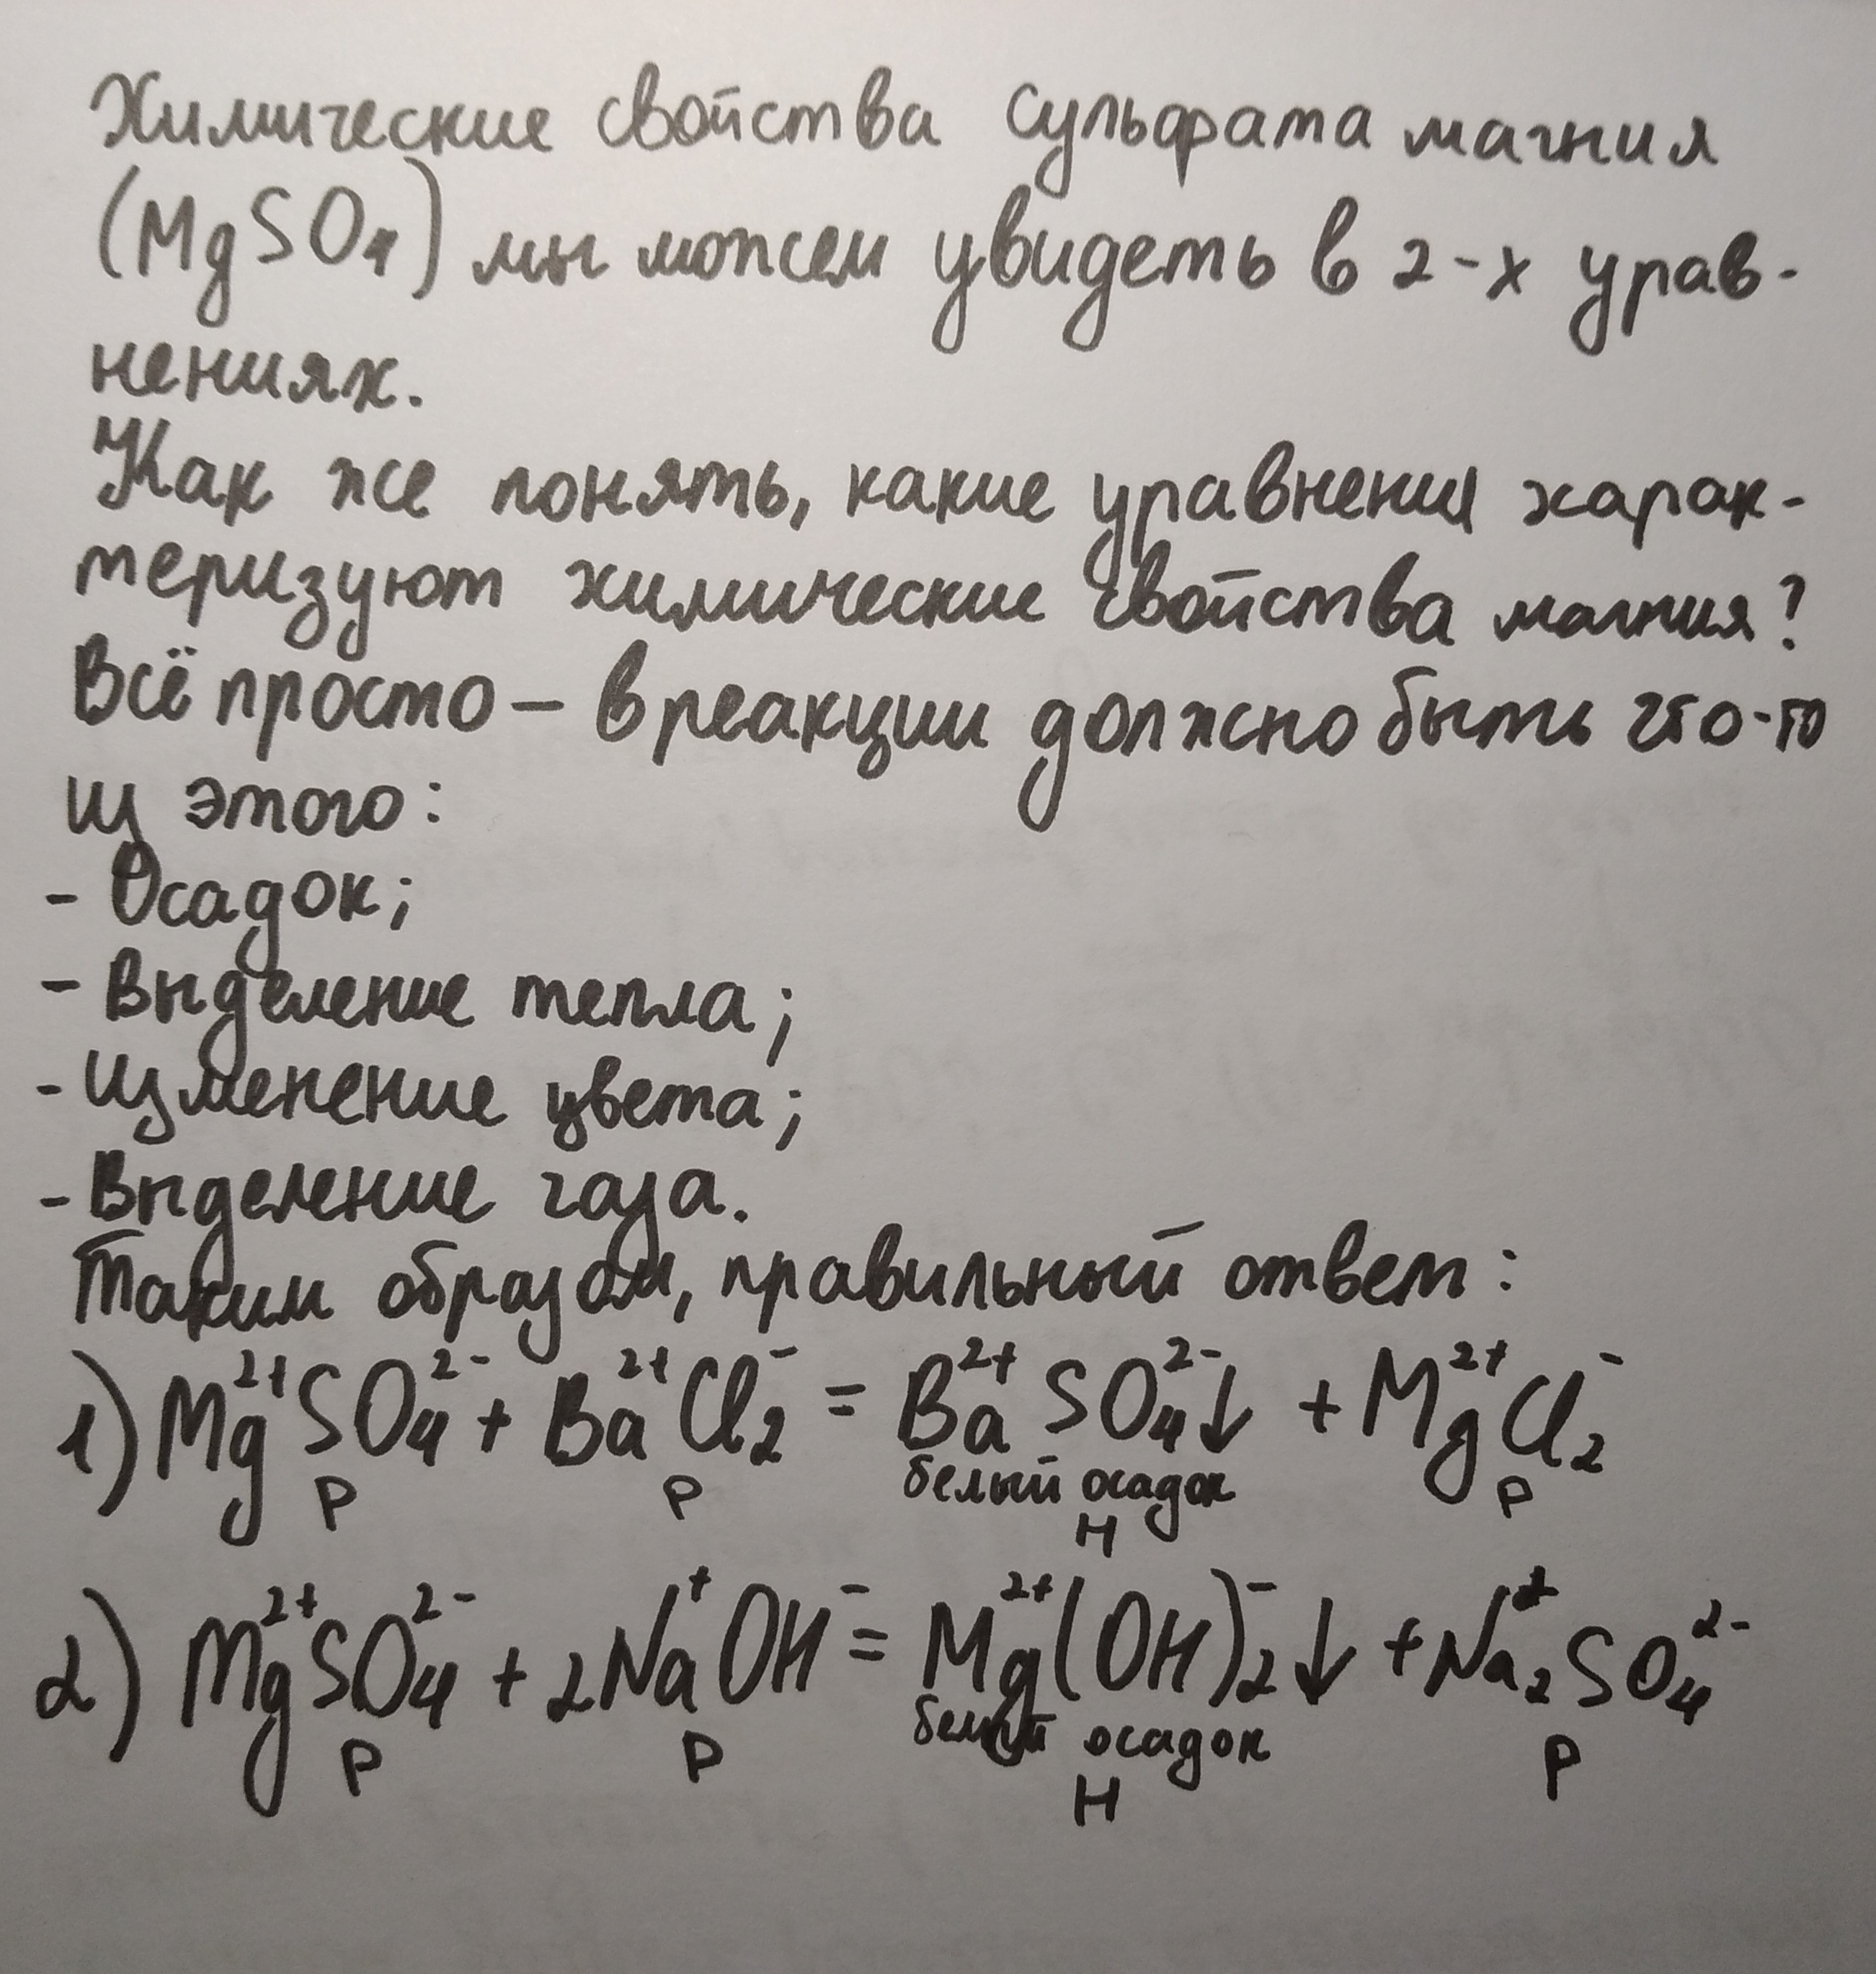 Химические свойства сульфата магния
(MgSO₄) мы можем увидеть в 2-х урав-
нениях.
Как же понять, какие уравнения харак-
теризуют химические свойства магния?
Всё просто – в реакции должно быть что-то
из этого:
- Осадок;
- Выделение тепла;
- Изменение цвета;
- Выделение газа.
Таким образом, правильный ответ:
1) Mg²⁺SO₄²⁻ + Ba²⁺Cl₂⁻ = Ba²⁺SO₄²⁻↓ + Mg²⁺Cl₂⁻
Р Р белый осадок Р
Н
2) Mg²⁺SO₄²⁻ + 2Na⁺OH⁻ = Mg²⁺(OH)₂⁻↓ + Na₂⁺SO₄²⁻
Р Р белый осадок Р
Н